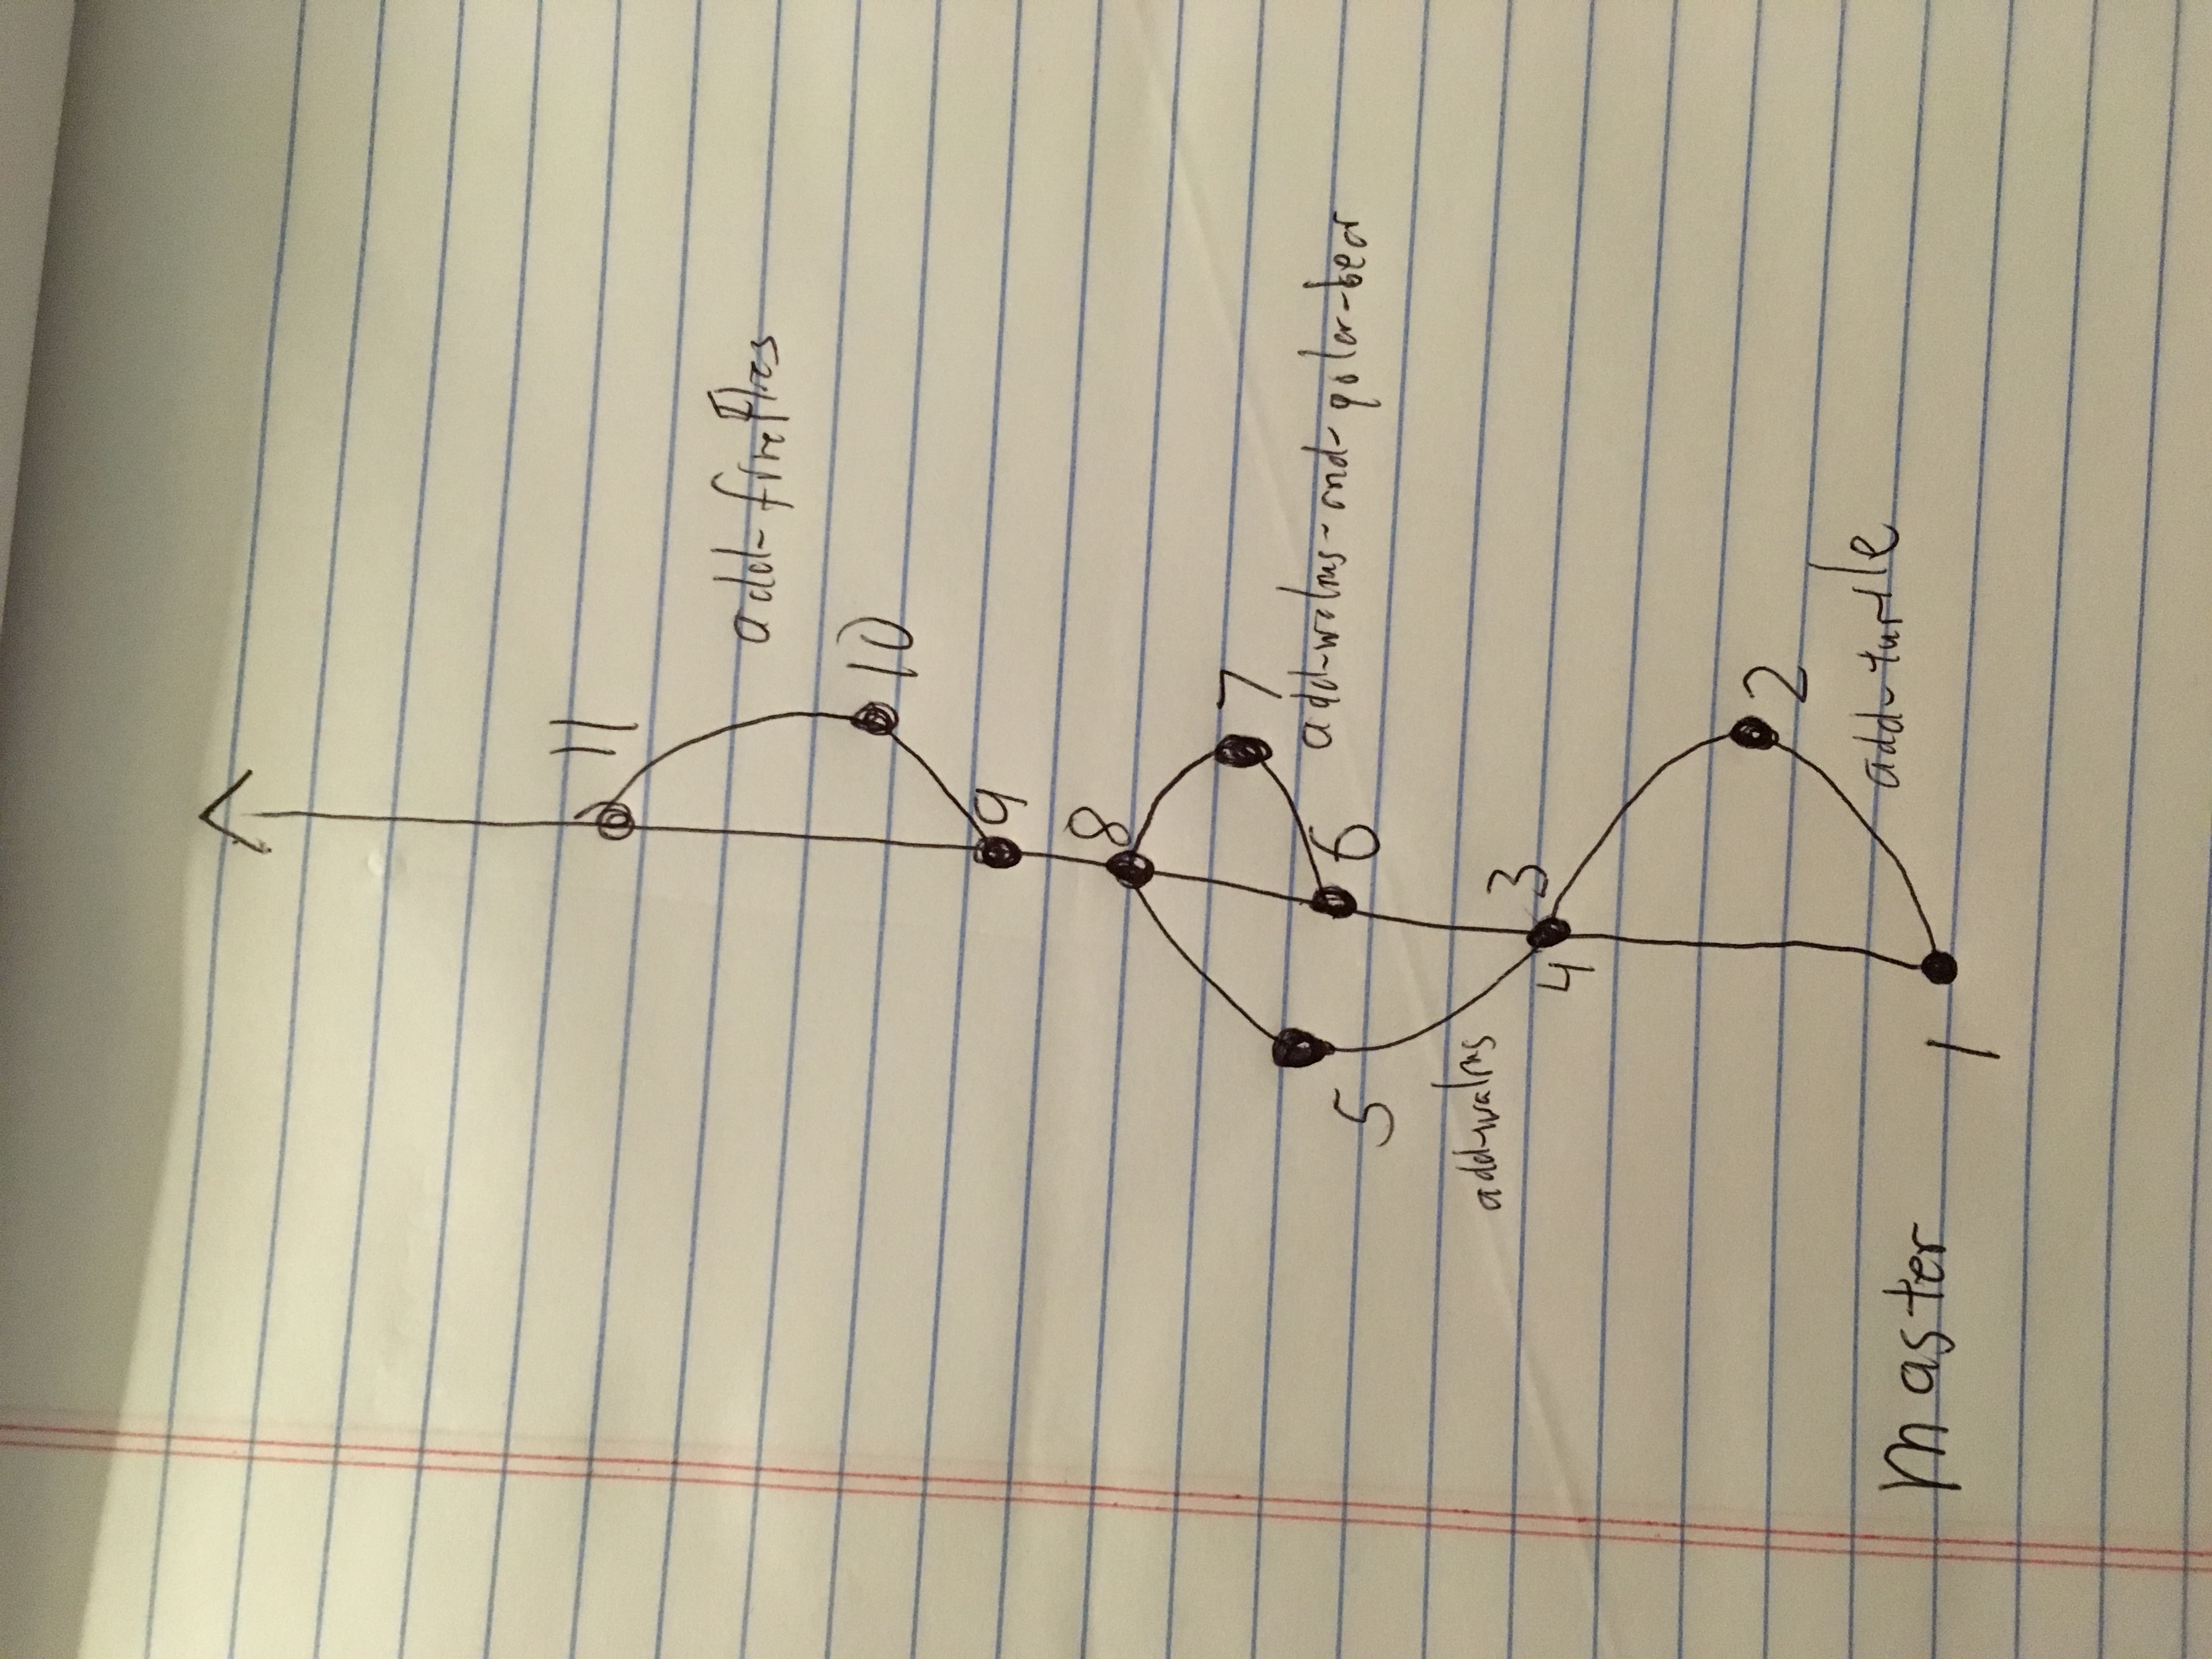 11
add-fireflies
10
9
8
7
add-walrus-and-polar-bear
6
5
add-walrus
3
4
2
add-turtle
master
1